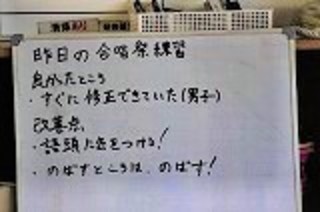 昨日の合唱祭練習
良かたところ
・すぐに修正できていた(男子)
改善点
・語頭に色をつける!
・のばすところは、のばす!